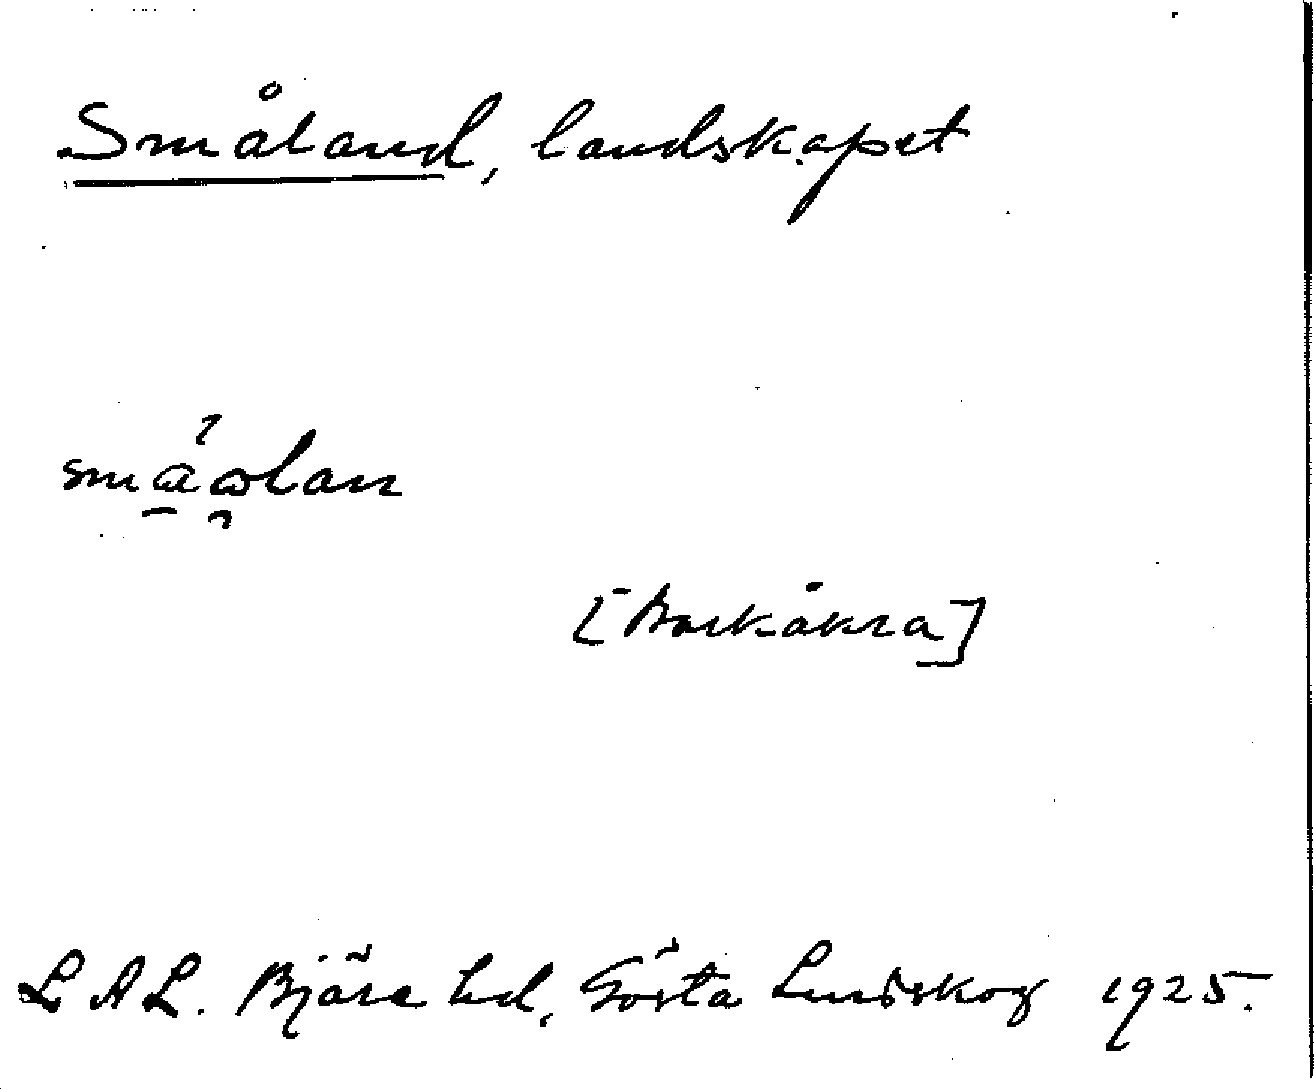 Småland, landskapet
[Barkåkra]
L A L. Bjäre hd, Gösta Lundskog 1925.